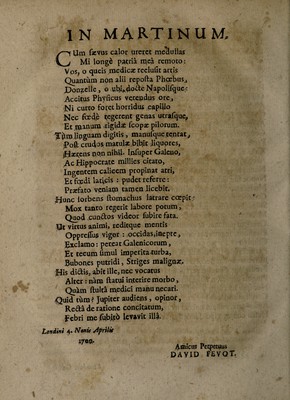 IN MARTINUM.
CUm sævus calor ureret medullas
Mi longè patriâ meâ remoto:
Vos, o queis medicæ reclusit artis
Quantùm non alii reposta Phœbus,
Donzelle, o ubi, docte Napolisque:
Accitus Physicus verendus ore,
Ni curto foret horridus capillo
Nec fœdè tegerent genas utrasque,
Et manum rigidæ scopæ pilorum.
Tùm linguam digitis, manusque tentat,
Post crudos matulæ bibit liquores,
Hærens non nihil. Insuper Galeno,
Ac Hippocrate millies citato,
Ingentem calicem propinat atri,
Et fœdi laticis: pudet referre:
Præfato veniam tamen licebit.
Hunc sorbens stomachus latrare cœpit:
Mox tanto regerit labore potum,
Quod cunctos videor subire fata.
Ut virtus animi, reditque mentis
Oppressus vigor: occidas, inepte,
Exclamo: pereat Galenicorum,
Et tecum simul imperita turba,
Bubones putridi, Striges malignæ.
His dictis, abit ille, nec vocatus
Alter: nàm statui interire morbo,
Quàm stultâ medici manu necari.
Quid tùm? Jupiter audiens, opinor,
Rectâ de ratione concitatum,
Febri me subitò levavit illâ.
Londini 4. Nonis Aprilis
1700.
Amicus Perpetuus
DAVID FEVOT.